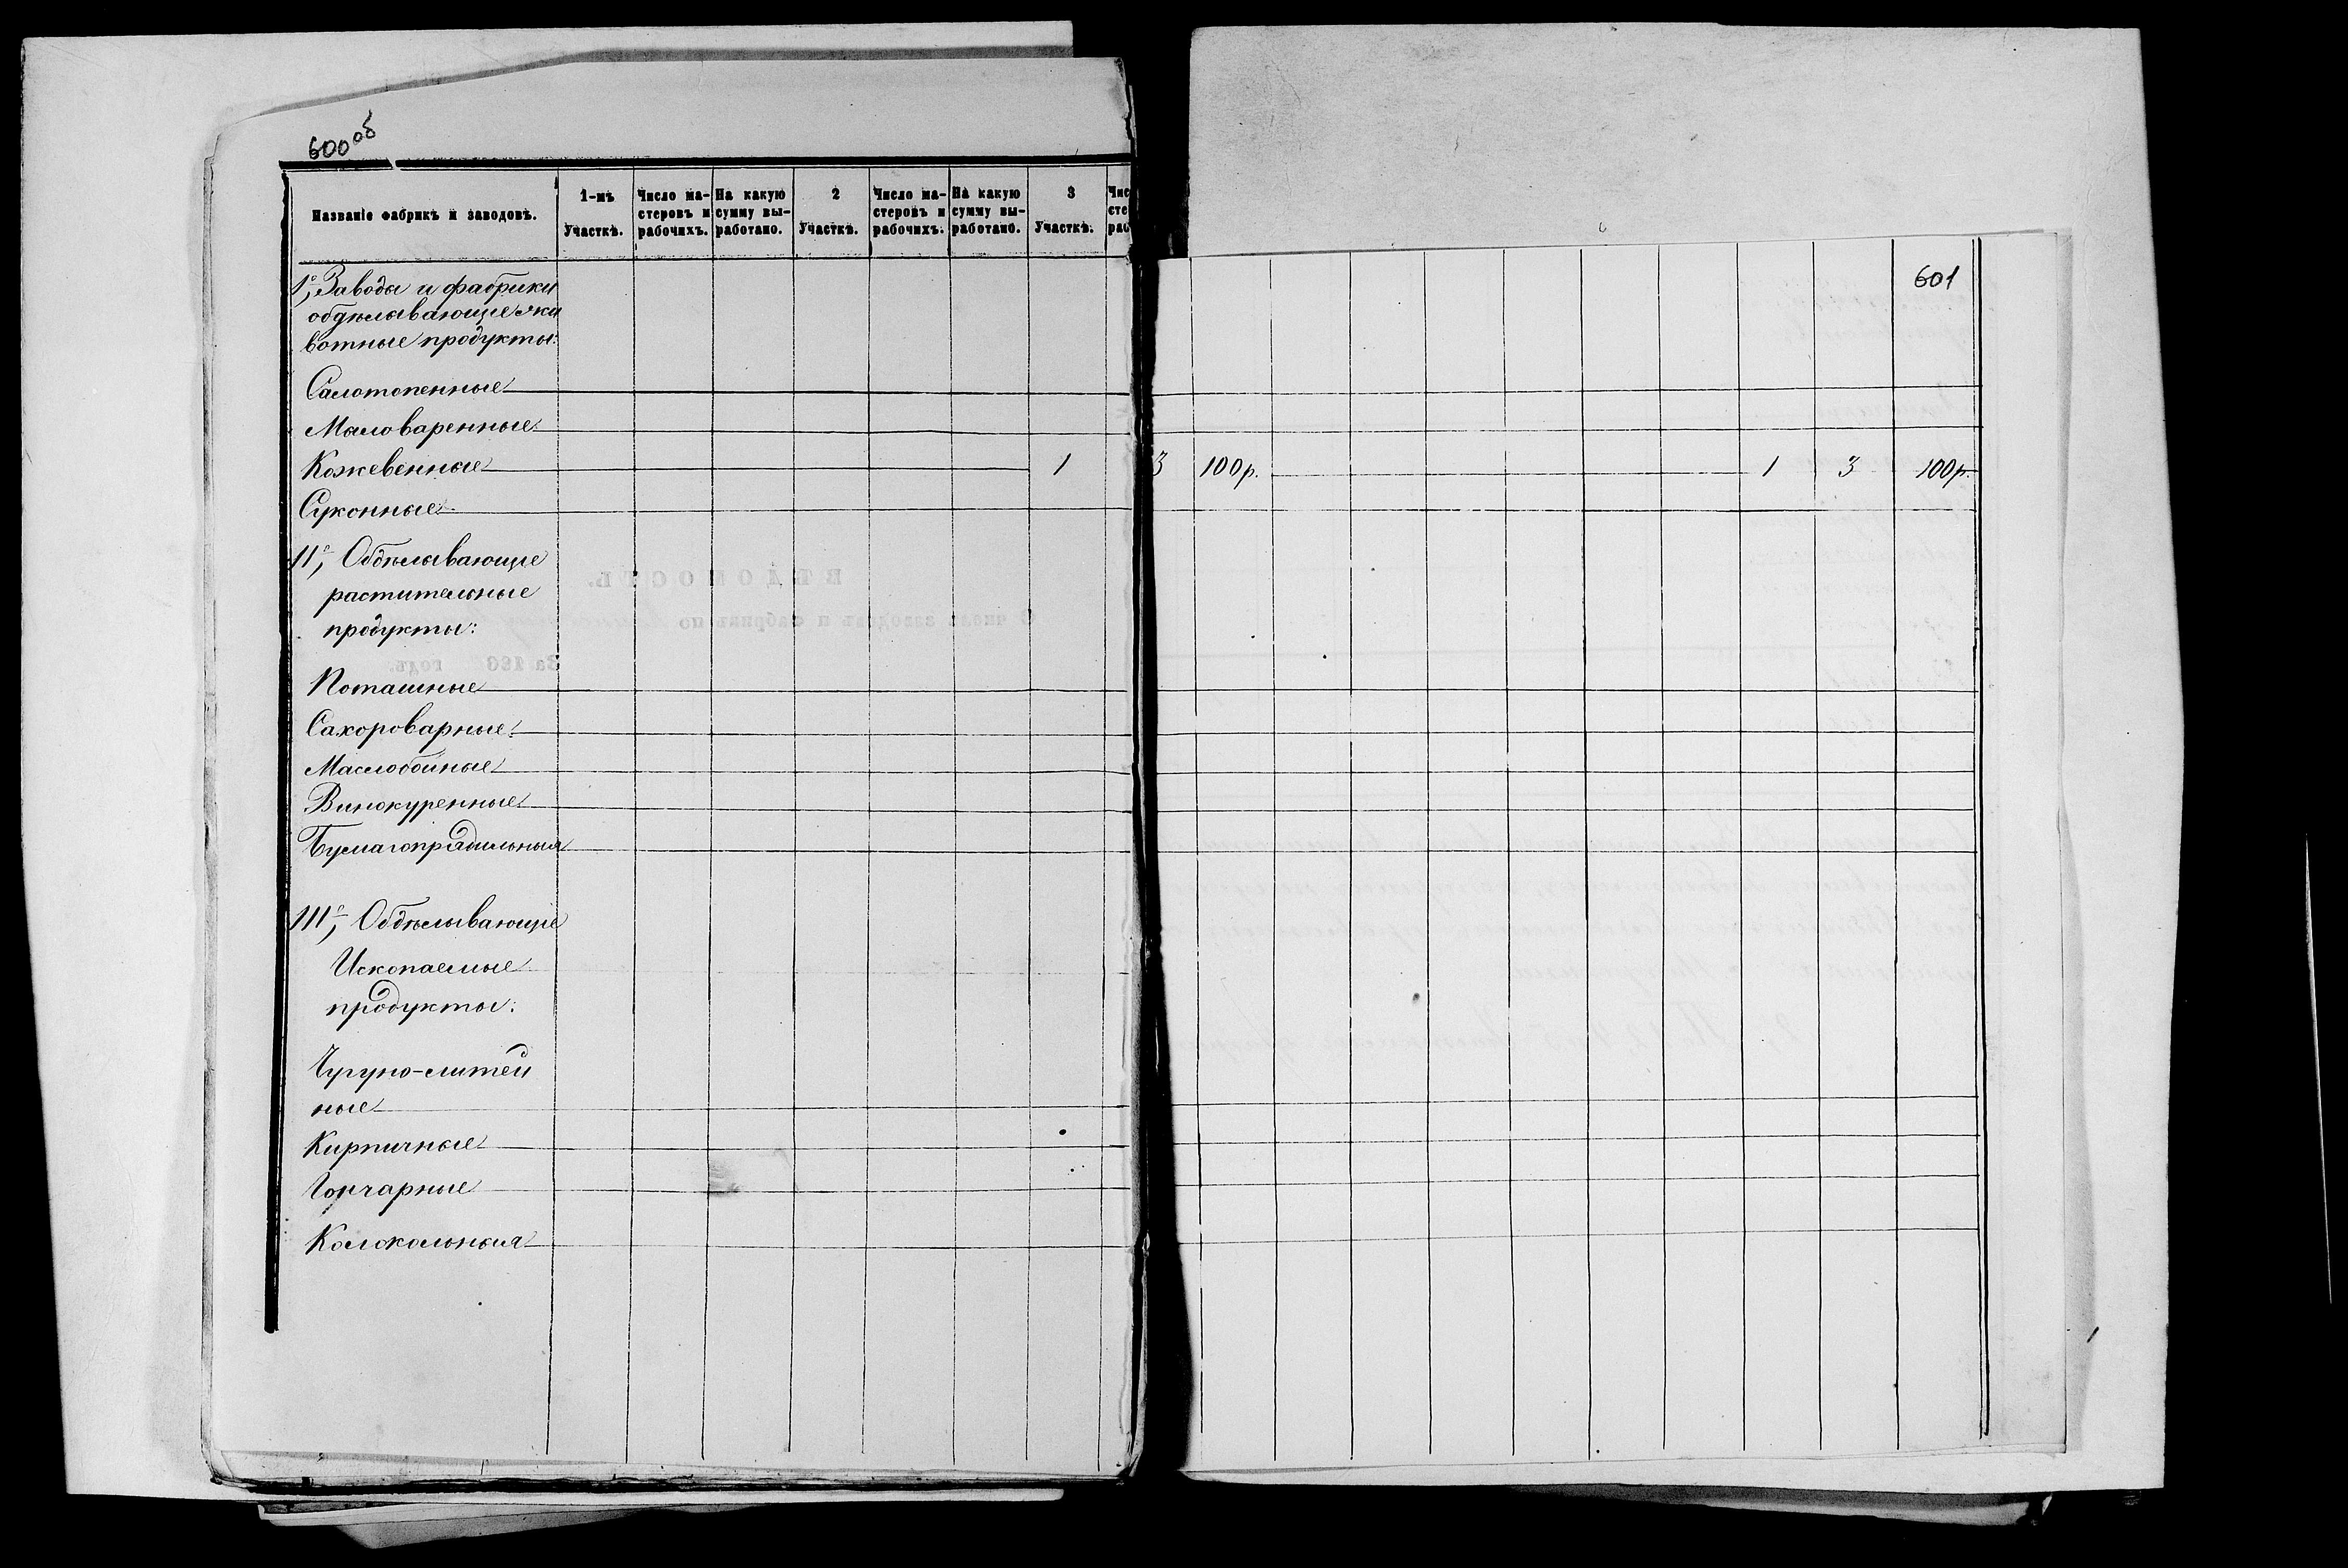 600 об
601
Названіе фабрикъ и заводовъ.
1-мъ Участкѣ.
Число мастеровъ и рабочихъ.
На какую сумму выработано.
2 Участкѣ.
Число мастеровъ и рабочихъ.
На какую сумму выработано.
3 Участкѣ.
Чис
сте
раб
1е, Заводы и фабрики
обдѣлывающіе жи
вотные продукты:
Салотопенные
Мыловаренные
Кожевенные 1 3 100р. 1 3 100р.
Суконные
IIе, Обдѣлывающіе
растительные
продукты:
Поташные
Сахороварные
Маслобойные
Винокуренные
Бумагопрядильныя
IIIе, Обдѣлывающіе
Ископаемые
продукты:
Чугуно-литей
ные
Кирпичные
Гончарные
Колокольныя